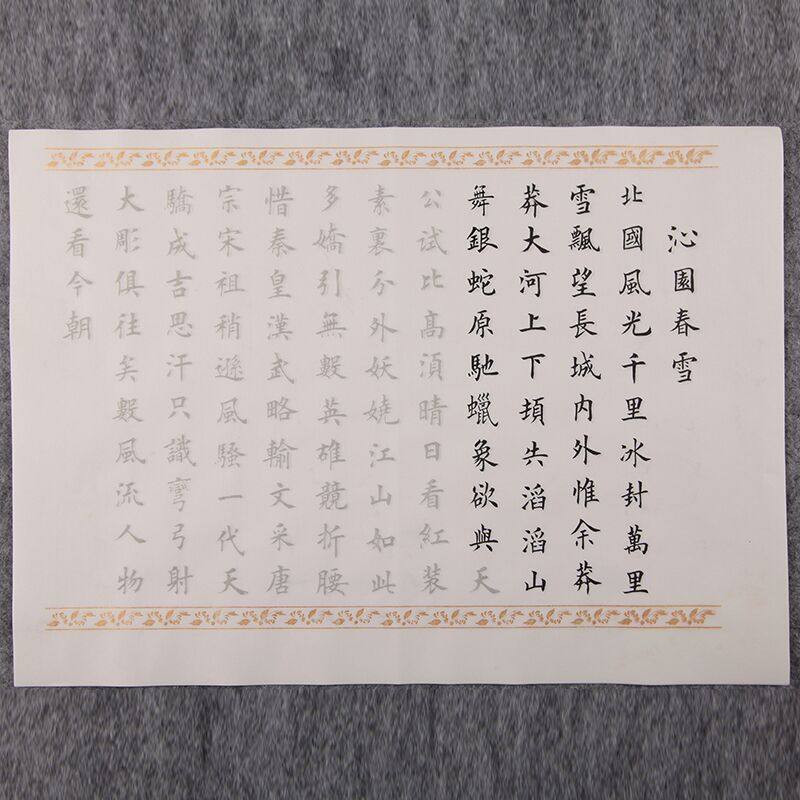 沁園春雪
北國風光千里冰封萬里
雪飄望長城内外惟余莽
莽大河上下頓失滔滔山
舞銀蛇原馳蠟象欲與天
公試比高須晴日看紅装
素裹分外妖嬈江山如此
多嬌引無數英雄競折腰
惜秦皇漢武略輸文采唐
宗宋祖稍遜風騷一代天
驕成吉思汗只識彎弓射
大彫俱往矣數風流人物
還看今朝